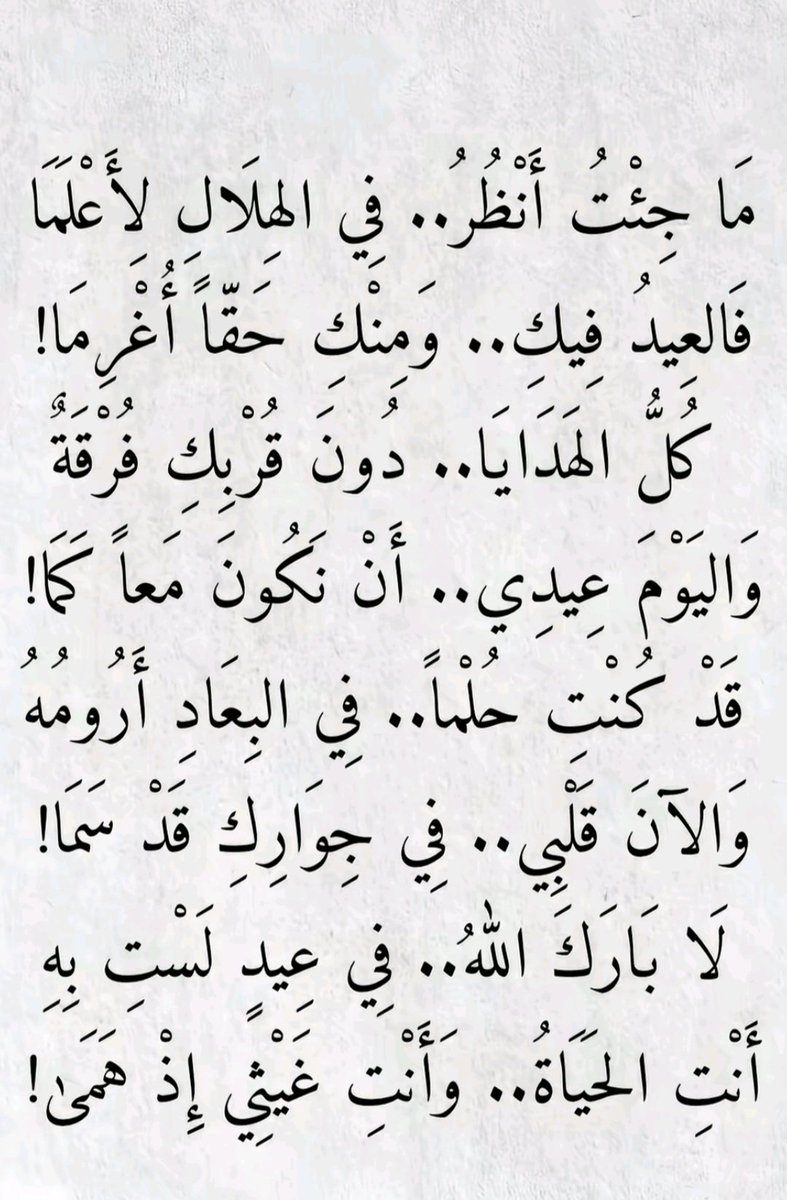 مَا جِئْتُ أَنْظُرُ.. فِي الهِلَالِ لأَعْلَمَا
فَالعِيدُ فِيكِ.. وَمِنْكِ حَقّاً أُغْرِمَا!
كُلُّ الهَدَايَا.. دُونَ قُرْبِكِ فُرْقَةٌ
وَاليَوْمَ عِيدِي.. أَنْ نَكُونَ مَعاً كَمَا!
قَدْ كُنْتِ حُلْماً.. فِي البِعَادِ أَرُومُهُ
وَالآنَ قَلْبِي.. فِي جِوَارِكِ قَدْ سَمَا!
لَا بَارَكَ اللهُ.. فِي عِيدٍ لَسْتِ بِهِ
أَنْتِ الحَيَاةُ.. وَأَنْتِ غَيْثِي إِذْ هَمَىٰ!